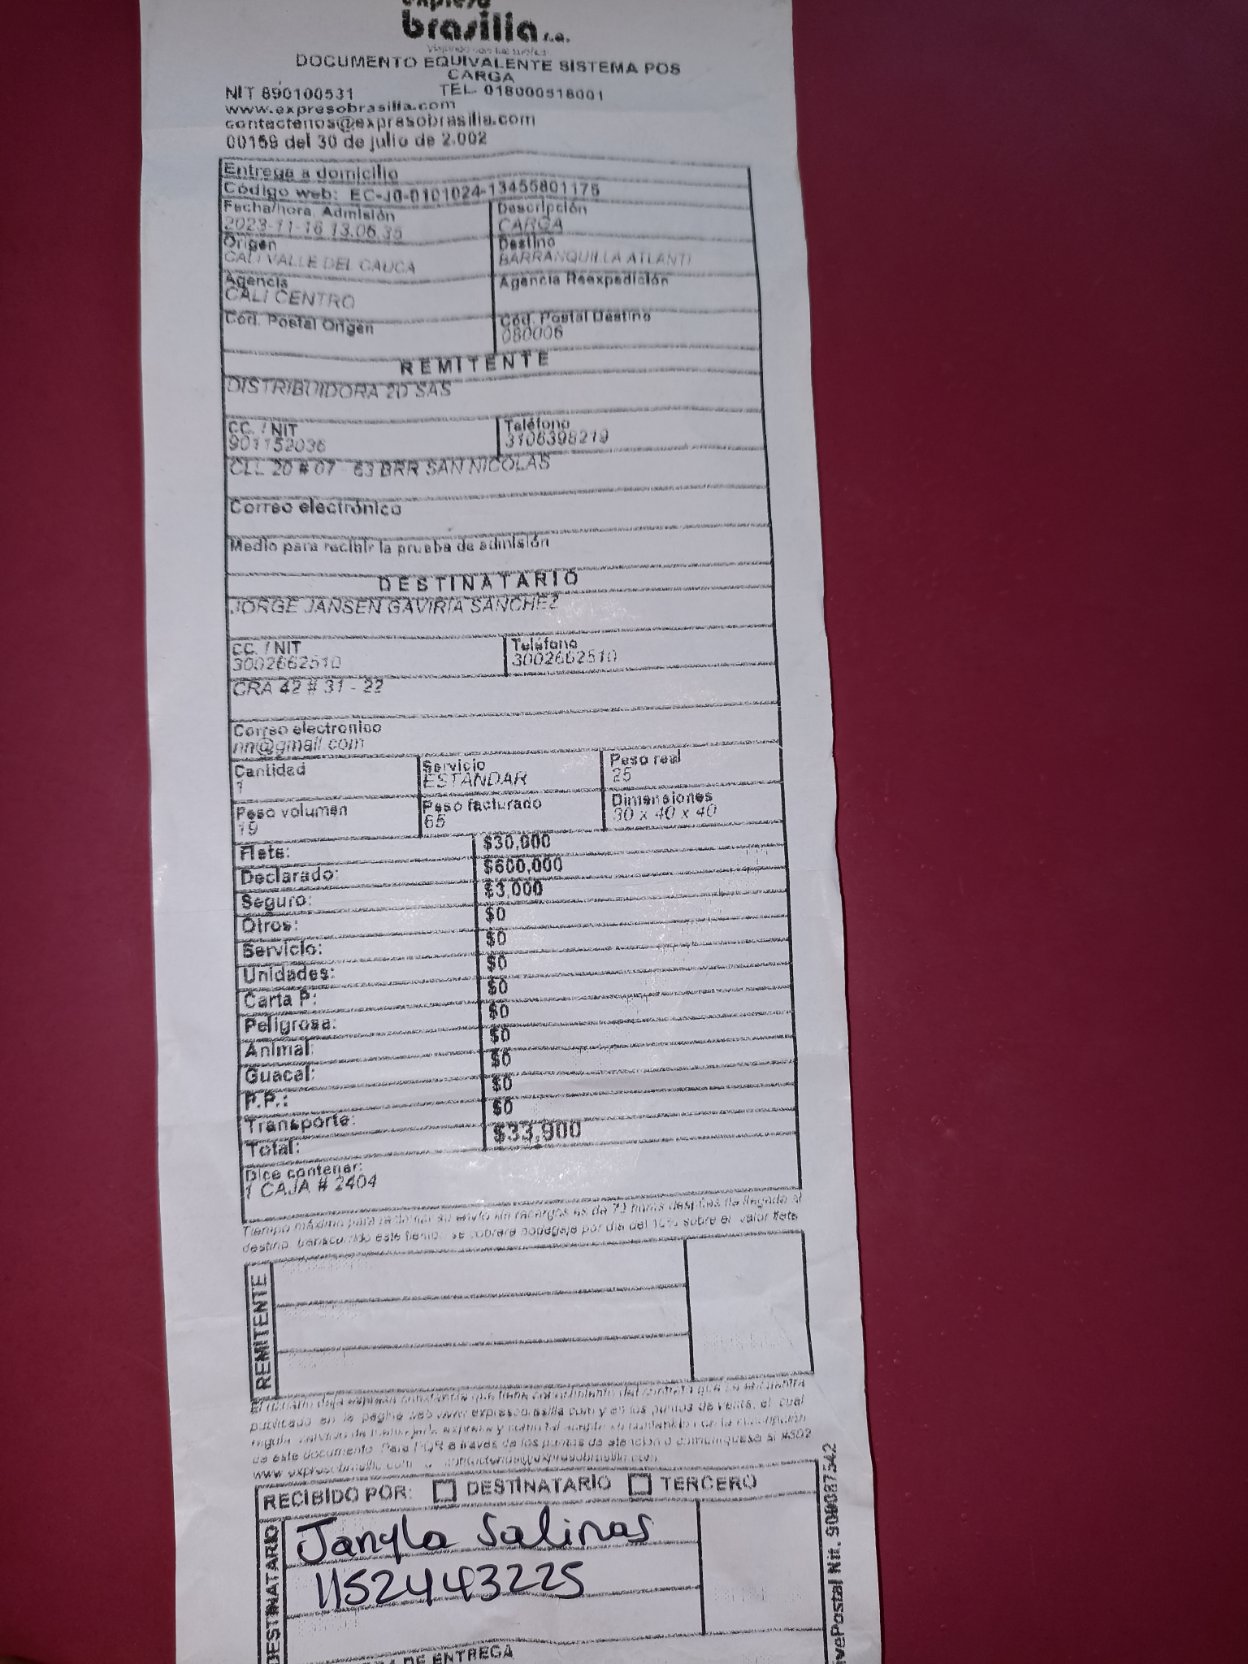 expreso
brasilia s.a.
DOCUMENTO EQUIVALENTE SISTEMA POS
CARGA
NIT 890100531 TEL. 018000518001
www.expresobrasilia.com
contactenos@expresobrasilia.com
00159 del 30 de julio de 2.002
Entrega a domicilio
Código web: EC-J0-0101024-13455801175
Fecha/hora Admisión Descripción
2023-11-16 13.06.35 CARGA
Origen Destino
CALI VALLE DEL CAUCA BARRANQUILLA ATLANTI
Agencia Agencia Reexpedición
CALI CENTRO
Cód. Postal Origen Cód. Postal Destino
080006
REMITENTE
DISTRIBUIDORA 2D SAS
CC. / NIT Teléfono
901152036 3106398219
CLL 20 # 07 - 63 BRR SAN NICOLAS
Correo electrónico
Medio para recibir la prueba de admisión
DESTINATARIO
JORGE JANSEN GAVIRIA SANCHEZ
CC. / NIT Teléfono
3002662510 3002662510
CRA 42 # 31 - 22
Correo electronico
nn@gmail.com
Cantidad Servicio Peso real
1 ESTANDAR 25
Peso volumen Peso facturado Dimensiones
19 65 30 x 40 x 40
Flete: $30,000
Declarado: $600,000
Seguro: $3,000
Otros: $0
Servicio: $0
Unidades: $0
Carta P: $0
Peligrosa: $0
Animal: $0
Guacal: $0
P.P.: $0
Transporte: $0
Total: $33,900
Dice contener:
1 CAJA # 2404
Tiempo máximo para reclamar su envío sin recargos es de 72 horas después de llegado al
destino, transcurrido este tiempo se cobrará bodegaje por día del 10% sobre el valor flete
REMITENTE
publicado en la página web www.expresobrasilia.com y en los puntos de venta, el cual
de este documento. Para PQR a través de los puntos de atención o comuníquese al #502
RECIBIDO POR: DESTINATARIO TERCERO
DESTINATARIO
Janyla Salinas
1152443225
DE ENTREGA
Nit. 900087542